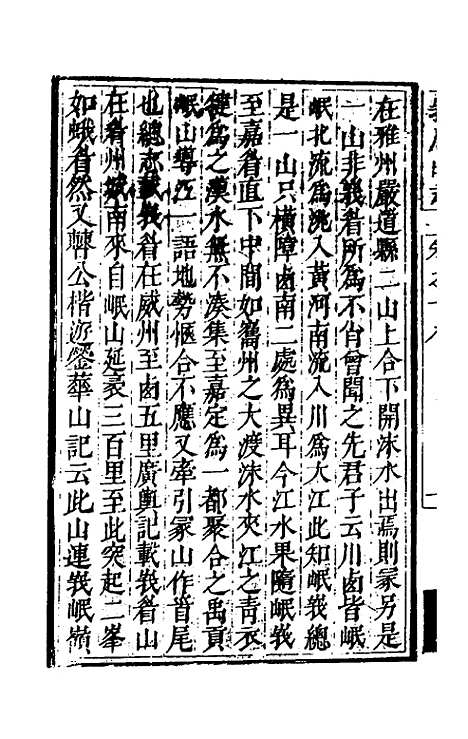 在雅州嚴道縣二山上合下開沫水出焉則冢另是
一山非義眷所爲不肖曾聞之先君子云川鹵皆岷
岷北流爲洮入黃河南流入川爲大江此知岷峩總
是一山只橫障鹵南二處爲異耳今江水果隨岷峩
至嘉眷直下中間如舊州之大渡沫水夾江之靑衣
犍爲之漢水無不湊集至嘉定爲一都聚合之禹貢
岷山導江一語地勢愜合不應又牽引冢山作首尾
也總志載峩眷在威州至鹵五里廣輿記載峩眷山
在眷州城南來自岷山延袤三百里至此突起二峯
如蛾眷然又韓公楷遊瑩華山記云此山連峩岷嶺